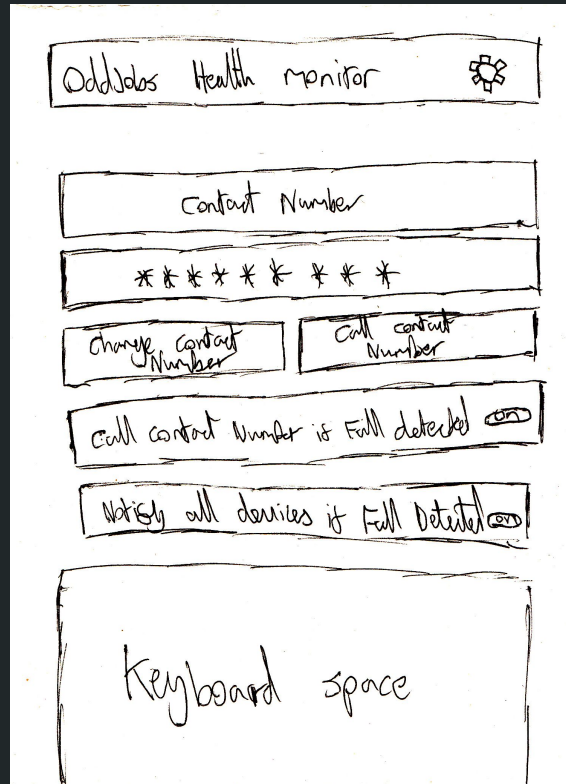 OddJobs Health monitor
Contact Number
* * * * * * * * *
Change Contact
Number
Call contact
Number
Call contact Number if Fall detected on
Notify all devices if Fall Detected on
Keyboard space